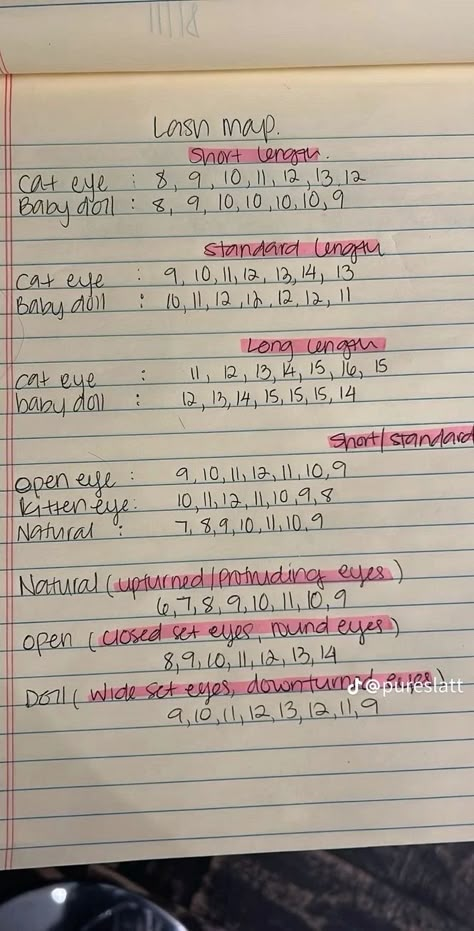 Lash map.
Short length.
Cat eye : 8, 9, 10, 11, 12, 13, 12
Baby doll : 8, 9, 10, 10, 10, 10, 9
Standard length
Cat eye : 9, 10, 11, 12, 13, 14, 13
Baby doll : 10, 11, 12, 12, 12, 12, 11
Long length
cat eye : 11, 12, 13, 14, 15, 16, 15
baby doll : 12, 13, 14, 15, 15, 15, 14
Short/standard
Open eye : 9, 10, 11, 12, 11, 10, 9
Kitten eye: 10, 11, 12, 11, 10, 9, 8
Natural : 7, 8, 9, 10, 11, 10, 9
Natural (upturned/protruding eyes)
6, 7, 8, 9, 10, 11, 10, 9
Open (closed set eyes, round eyes)
8, 9, 10, 11, 12, 13, 14
Doll (wide set eyes, downturned eyes)
@pureslatt
9, 10, 11, 12, 13, 12, 11, 9